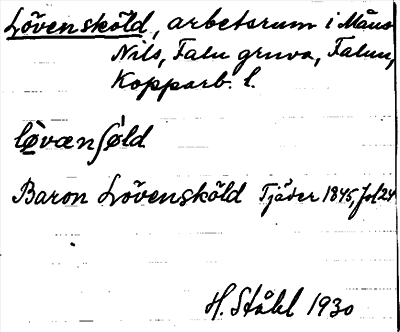 Lövensköld, arbetsrum i Måns
Nils, Falu gruva, Falun,
Kopparb. l.
lø̀vænʃø̀ld
Baron Lövensköld Tjäder 1845, fol 24
H. Ståhl 1930